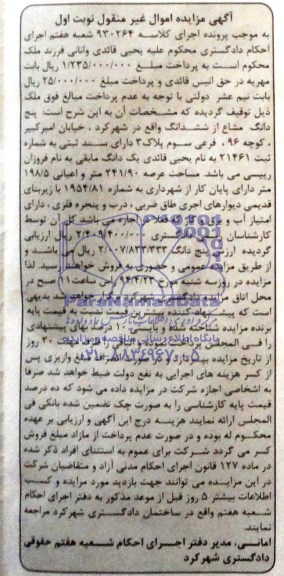 آگهی مزایده اموال غیر منقول نوبت اول
به موجب پرونده اجرای کلاسه ۹۳۰۲۶۴ شعبه هفتم اجرای
احکام دادگستری محکوم علیه یحیی قائدی وانانی فرزند ملک
محکوم است به پرداخت مبلغ ۱/۲۳۵/۰۰۰/۰۰۰ ریال بابت
مهریه در حق انیس قائدی و پرداخت مبلغ ۲۵/۰۰۰/۰۰۰ ریال
بابت نیم عشر دولتی با توجه به عدم پرداخت مبالغ فوق ملک
ذیل توقیف گردیده که مشخصات آن به این شرح است: پنج
دانگ مشاع از ششدانگ واقع در شهرکرد ، خیابان امیرکبیر
، کوچه ۹۶ ، فرعی سوم پلاک۳ دارای سند ثبتی به شماره
ثبت ۲۱۴۶۱ به نام یحیی قائدی یک دانگ مابقی به نام فروزان
رییسی می باشد. مساحت عرصه ۲۴۱/۹۰ متر و اعیانی ۱۹۸/۵
متر دارای پایان کار از شهرداری به شماره ۱۹۵۴/۸۱ با زیربنای
قدیمی دیوارهای آجری طاق ضربی ، درب و پنجره فلزی ، دارای
امتیاز آب و برق و گاز که فعلا در اجاره می باشد کل آن توسط
کارشناسان دادگستری ریال ارزیابی
گردیده ارزش پنج دانگ ۲/۰۰۷/۸۳۳/۳۳۳ ریال می باشد و
از طریق مزایده عمومی و حضوری به فروش خواهد رسید. لذا
مزایده در روز سه شنبه مورخ ۹۴/۴/۲۳ راس ساعت صبح در
محل اتاق مزایده دادگستری شهرکرد برگزار خواهد شد بدیهی
است که پیشنهاد کننده بالاترین قیمت نسبت به قیمت پایه
برنده مزایده شناخته شده و بایستی ۱۰ درصد بهای پیشنهادی
را فی المجلس پرداخت ظرف مدت ۳۰ روز
از تاریخ مزایده مبلغ واریزی پس
از کسر هزینه های اجرایی به نفع دولت ضبط خواهد شد صرفا
به اشخاصی اجازه شرکت در مزایده داده می شود که ده درصد
قیمت پایه کارشناسی را به صورت چک تضمین شده بانکی فی
المجلس ارائه نمایند هزینه درج این آگهی و ارزیابی بر عهده
محکوم له بوده و در صورت عدم پرداخت از مازاد مبلغ فروش
کسر می گردد شرکت برای عموم به استثنای افراد ذکر شده
در ماده ۱۲۷ قانون اجرای احکام مدنی آزاد و متقاضیان شرکت
در این مزایده می توانند جهت بازدید مورد مزایده و کسب
اطلاعات بیشتر ۵ روز قبل از موعد مذکور به دفتر اجرای احکام
شعبه هفتم واقع در ساختمان دادگستری شهرکرد مراجعه
نمایند.
امانی، مدیر دفتر اجرای احکام شعبه هفتم حقوقی
دادگستری شهرکرد
ParsNamadData
۰۲۱-۸۸۳۴۹۶۷۰-۵